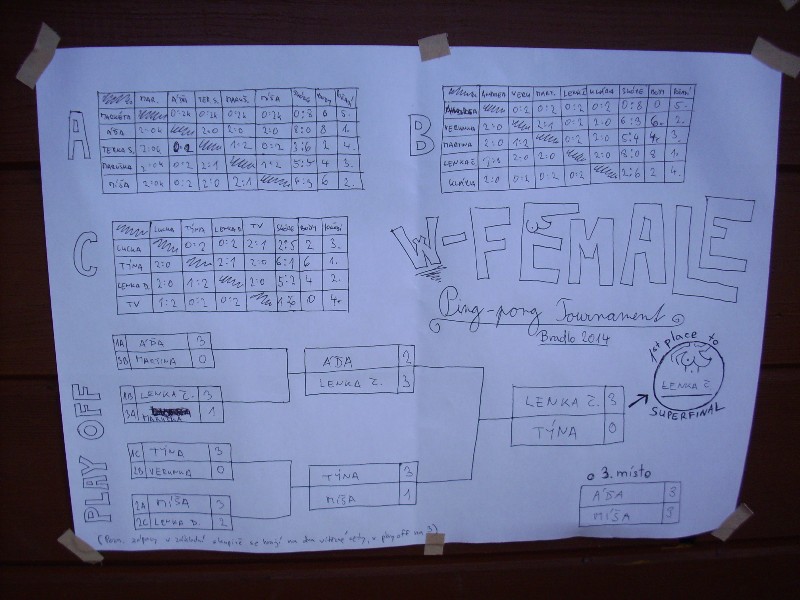 A
MAR. ÁŠA TER S. MARUŠ. MÍŠA SKÓRE BODY
MARKÉTA 0:2k 0:2k 0:2k 0:2k 0:8 0 5.
ÁŠA 2:0k 2:0 2:0 2:0 8:0 8 1.
TERKA S. 2:0k 0:2 1:2 0:2 2 4.
MARUŠKA 2:0k 0:2 2:1 1:2 5:4 4 3.
MÍŠA 2:0k 0:2 2:0 2:1 6 2.
B
ANDREA VERU MART. LENKŽ KLÁRA SKÓRE BODY
ANDREA 0:2 0:2 0:2 0:2 0:8 0 5.
VERUNKA 2:0 2:1 0:2 2:0 6:3 6. 2.
MARTINA 2:0 1:2 0:2 2:0 5:4 4. 3.
LENKA Ž 2:0 2:0 2:0 8:0 8 1.
KLÁRA 2:0 0:2 0:2 0:2 2:6 2 4.
C
LUCKA TÝNA LENKA D. TV SKÓRE BODY
LUCKA 0:2 0:2 2:1 2:5 2 3.
TÝNA 2:0 2:1 2:0 6:1 6 1.
LENKA D. 2:0 1:2 2:0 5:2 4 2.
TV 1:2 0:2 0:2 1:6 0 4.
W-FEMALE
Ping-pong Tournament
Bradlo 2014
PLAY OFF
1A ÁŠA 3
3B MARTINA 0
1B LENKA Ž. 3
3A MARUŠKA 1
1C TÝNA 3
2B VERUNKA 0
2A MÍŠA 3
2C LENKA D. 2
ÁŠA 2
LENKA Ž. 3
TÝNA 3
MÍŠA 1
LENKA Ž. 3
TÝNA 0
1st place to
LENKA Ž.
SUPERFINAL
o 3. místo
ÁŠA 3
MÍŠA 3
(Pozn. zápasy v základní skupině se hrají na dva vítězné sety, v play off na 3)